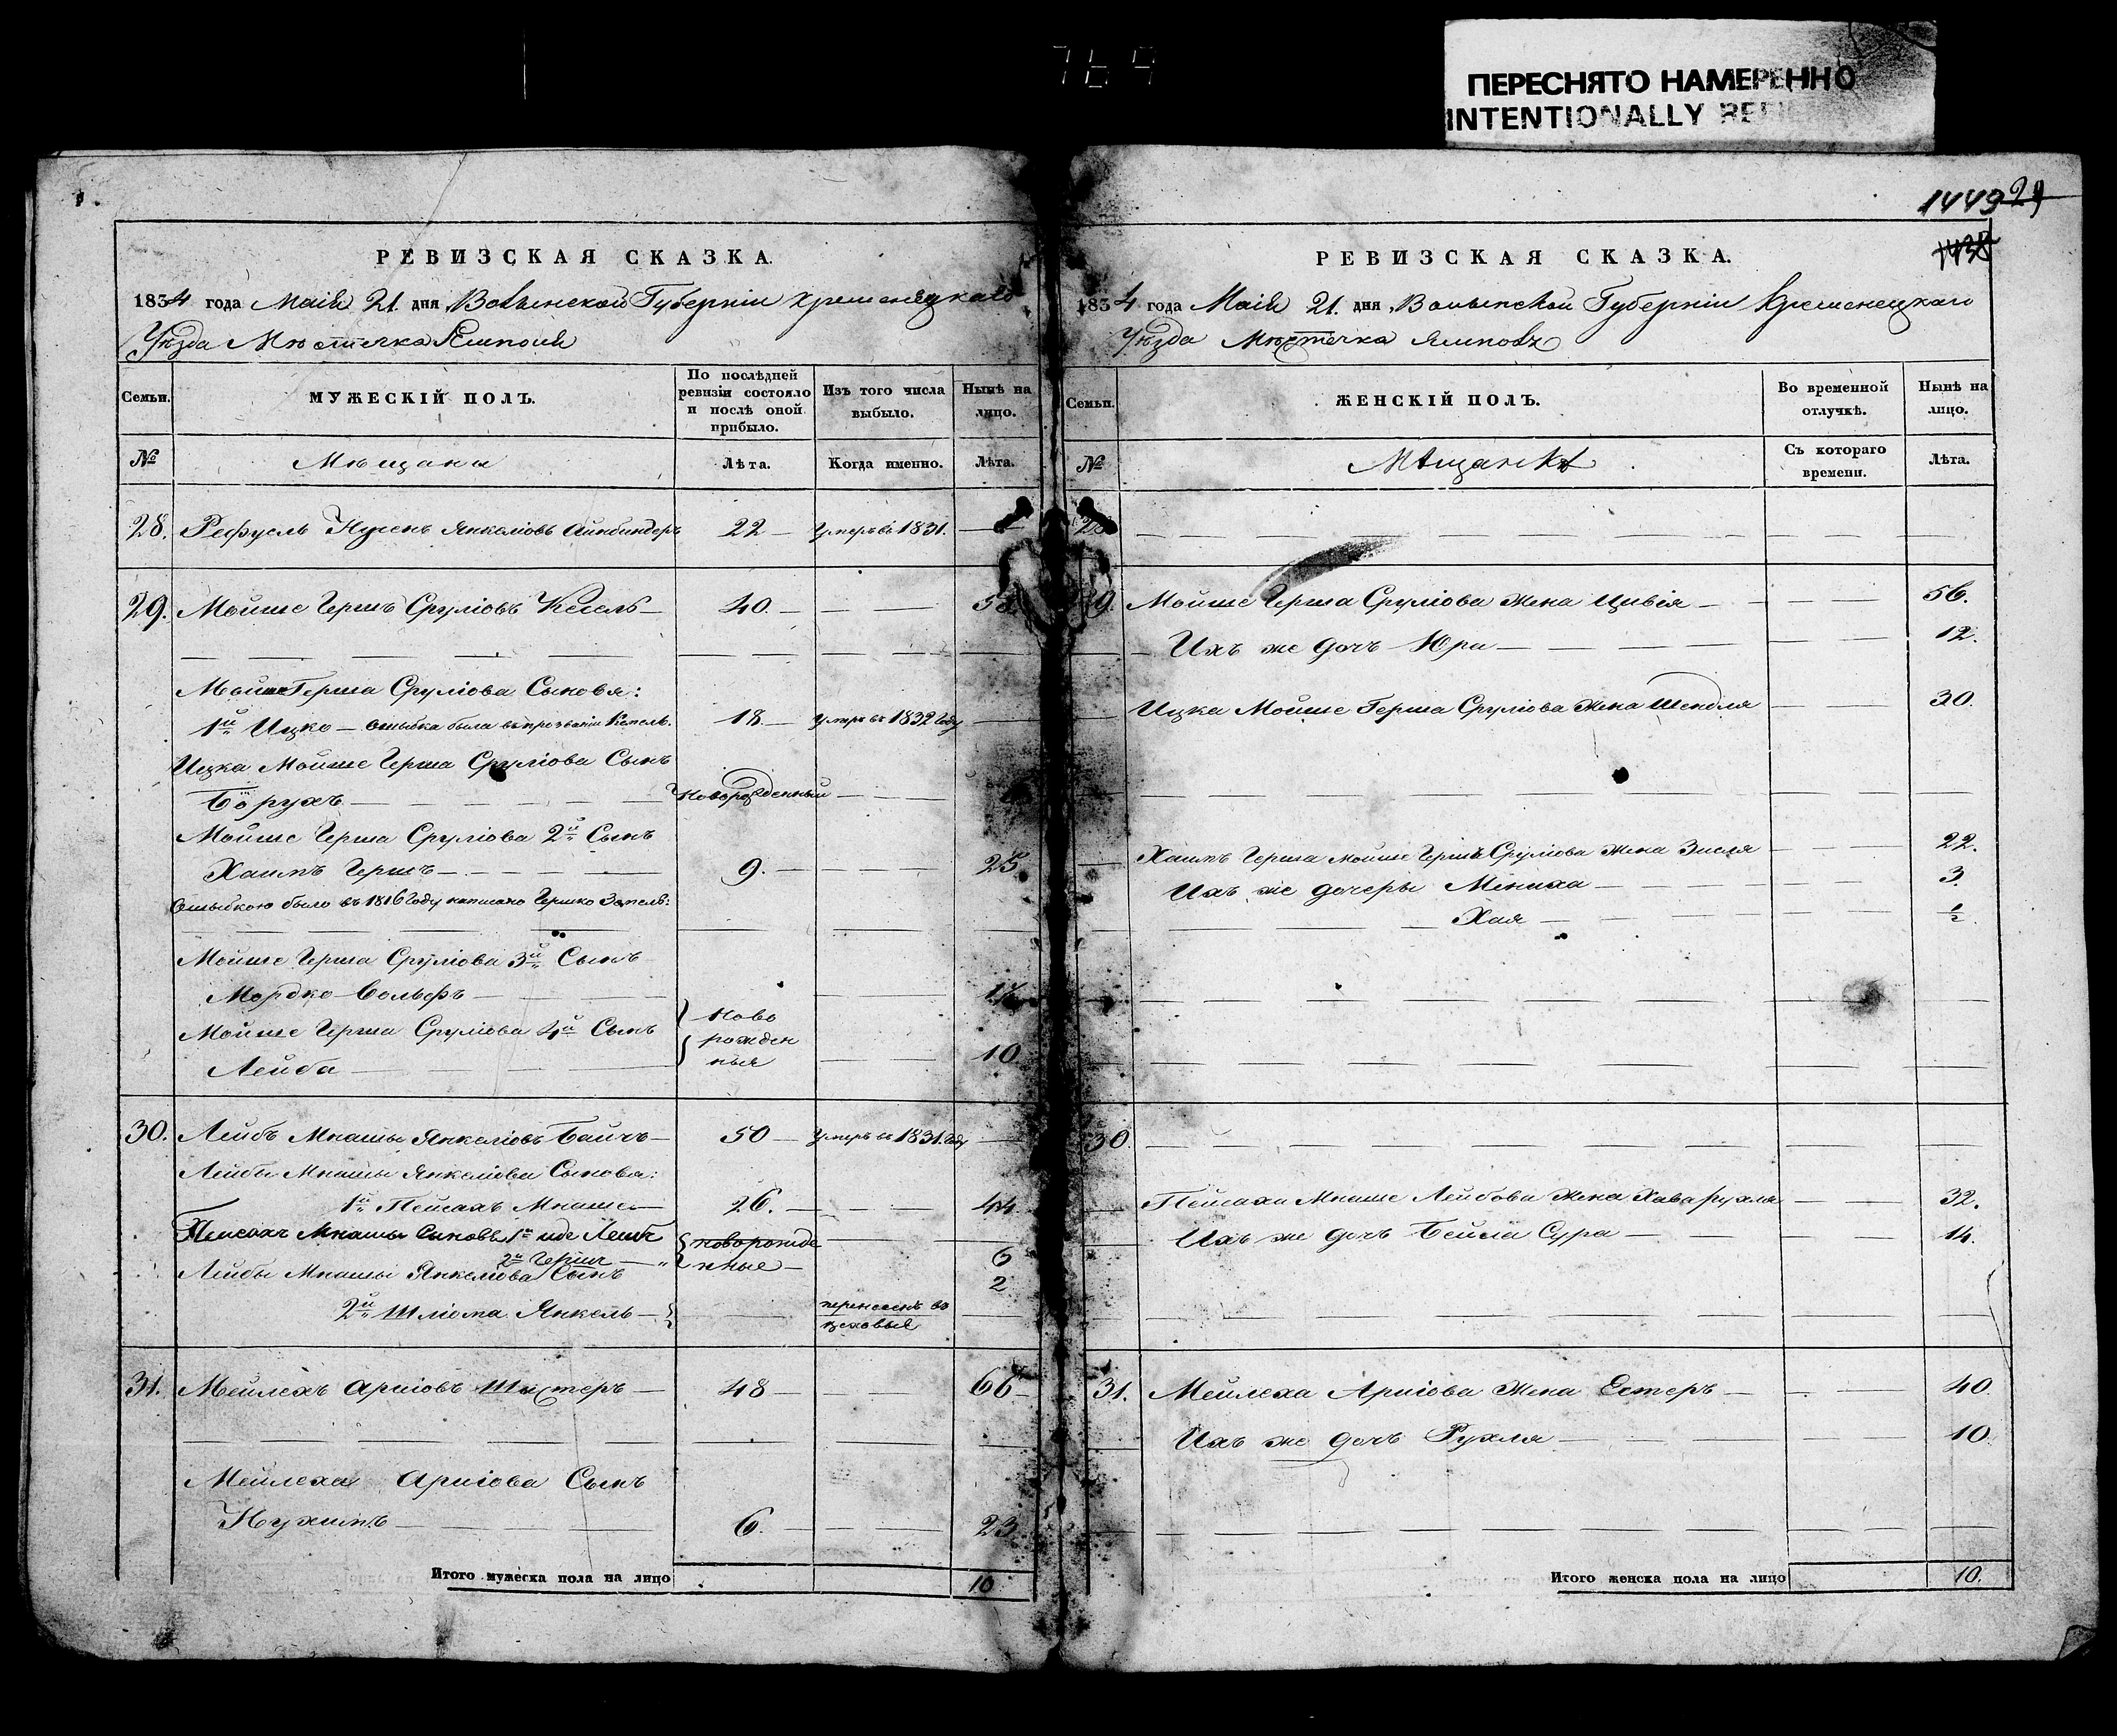 769
ПЕРЕСНЯТО НАМЕРЕННО
INTENTIONALLY
1449
29
1438
РЕВИЗСКАЯ СКАЗКА.
1834 года Маія 21. дня, Волынской Губерніи кременецкаго
Уѣзда Мѣстечка Ямполя
Семьи.
МУЖЕСКІЙ ПОЛЪ.
По послѣдней ревизіи состояло и послѣ оной прибыло.
Изъ того числа выбыло.
Нынѣ на лицо.
№
Мѣщане
Лѣта.
Когда именно.
Лѣта.
28. Рефуель Нусенъ Янкеліовъ Айнбиндеръ 22 — Умеръ въ 1831. —
29. Мойше Гершъ Сруліовъ Кесель — 40. — — — 58.
Мойше Герша Сруліова Сыновя:
1й Ицко — ошибка была въ прозваніи Кесель. 18 — умеръ въ 1832 году
Ицка Мойше Герша Сруліова Сынъ
Борухъ — Новорожденный — —
Мойше Герша Сруліова 2й Сынъ
Хаимъ Гершъ — 9. — — — 25
Ошыбкою было въ 1816 году написано Гершко
Мойше Герша Сруліова 3й Сынъ
Мордко Вольфъ — — — 17
Мойше Герша Сруліова 4й Сынъ
Ново
рожден
ныя
Лейба — — — 10.
30. Лейбъ Мнашы Янкеліовъ Байчъ — 50 — Умеръ въ 1831. году —
Лейбы Мнашы Янкеліова Сынова:
1й Пейсахъ Мнаше — 26. — — — 44
Пейсахъ Мнашы Сыновя 1й Лейб новорожде — — 6
2й Гершъ — ные — 2
Лейбы Мнашы Янкеліова Сынъ
2й Шліома Янкель — — перенесенъ во
цеховые
31. Мейлехъ Аріовъ Шустеръ — 48 — — 66
Мейлеха Аріова Сынъ
Нухимъ — 6. — — 23.
Итого мужеска пола на лицо 10
РЕВИЗСКАЯ СКАЗКА.
1834 года Маія 21. дня, Волынской Губерніи Кременецкаго
Уѣзда Мѣстечка Ямполя
Семьи.
ЖЕНСКІЙ ПОЛЪ.
Во временной отлучкѣ.
Нынѣ на лицо.
№
Мѣщанки
Съ котораго времени.
Лѣта.
28.
29. Мойше Герша Сруліова жена Цивія — — — 56.
Ихъ же дочь Юра — — — 12.
Ицка Мойше Герша Сруліова жена Шендля — — 30.
Хаимъ Герша Мойше Гершъ Сруліова жена Зисля — — 22.
Ихъ же дочеры Мениха — — 3.
Хая — — ½
30.
Пейсаха Мнаше Лейбова жена Хава рухля — — 32.
Ихъ же дочь Бейла Сура — — 14.
31. Мейлеха Аріова жена Естеръ — — 40.
Ихъ же дочь Рухля — — 10.
Итого женска пола на лицо 10.